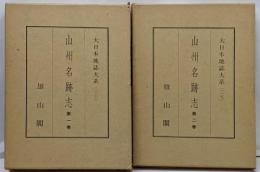 大日本地誌大系
山州名跡志
第一巻
雄山閣
大日本地誌大系
山州名跡志
第二巻
雄山閣